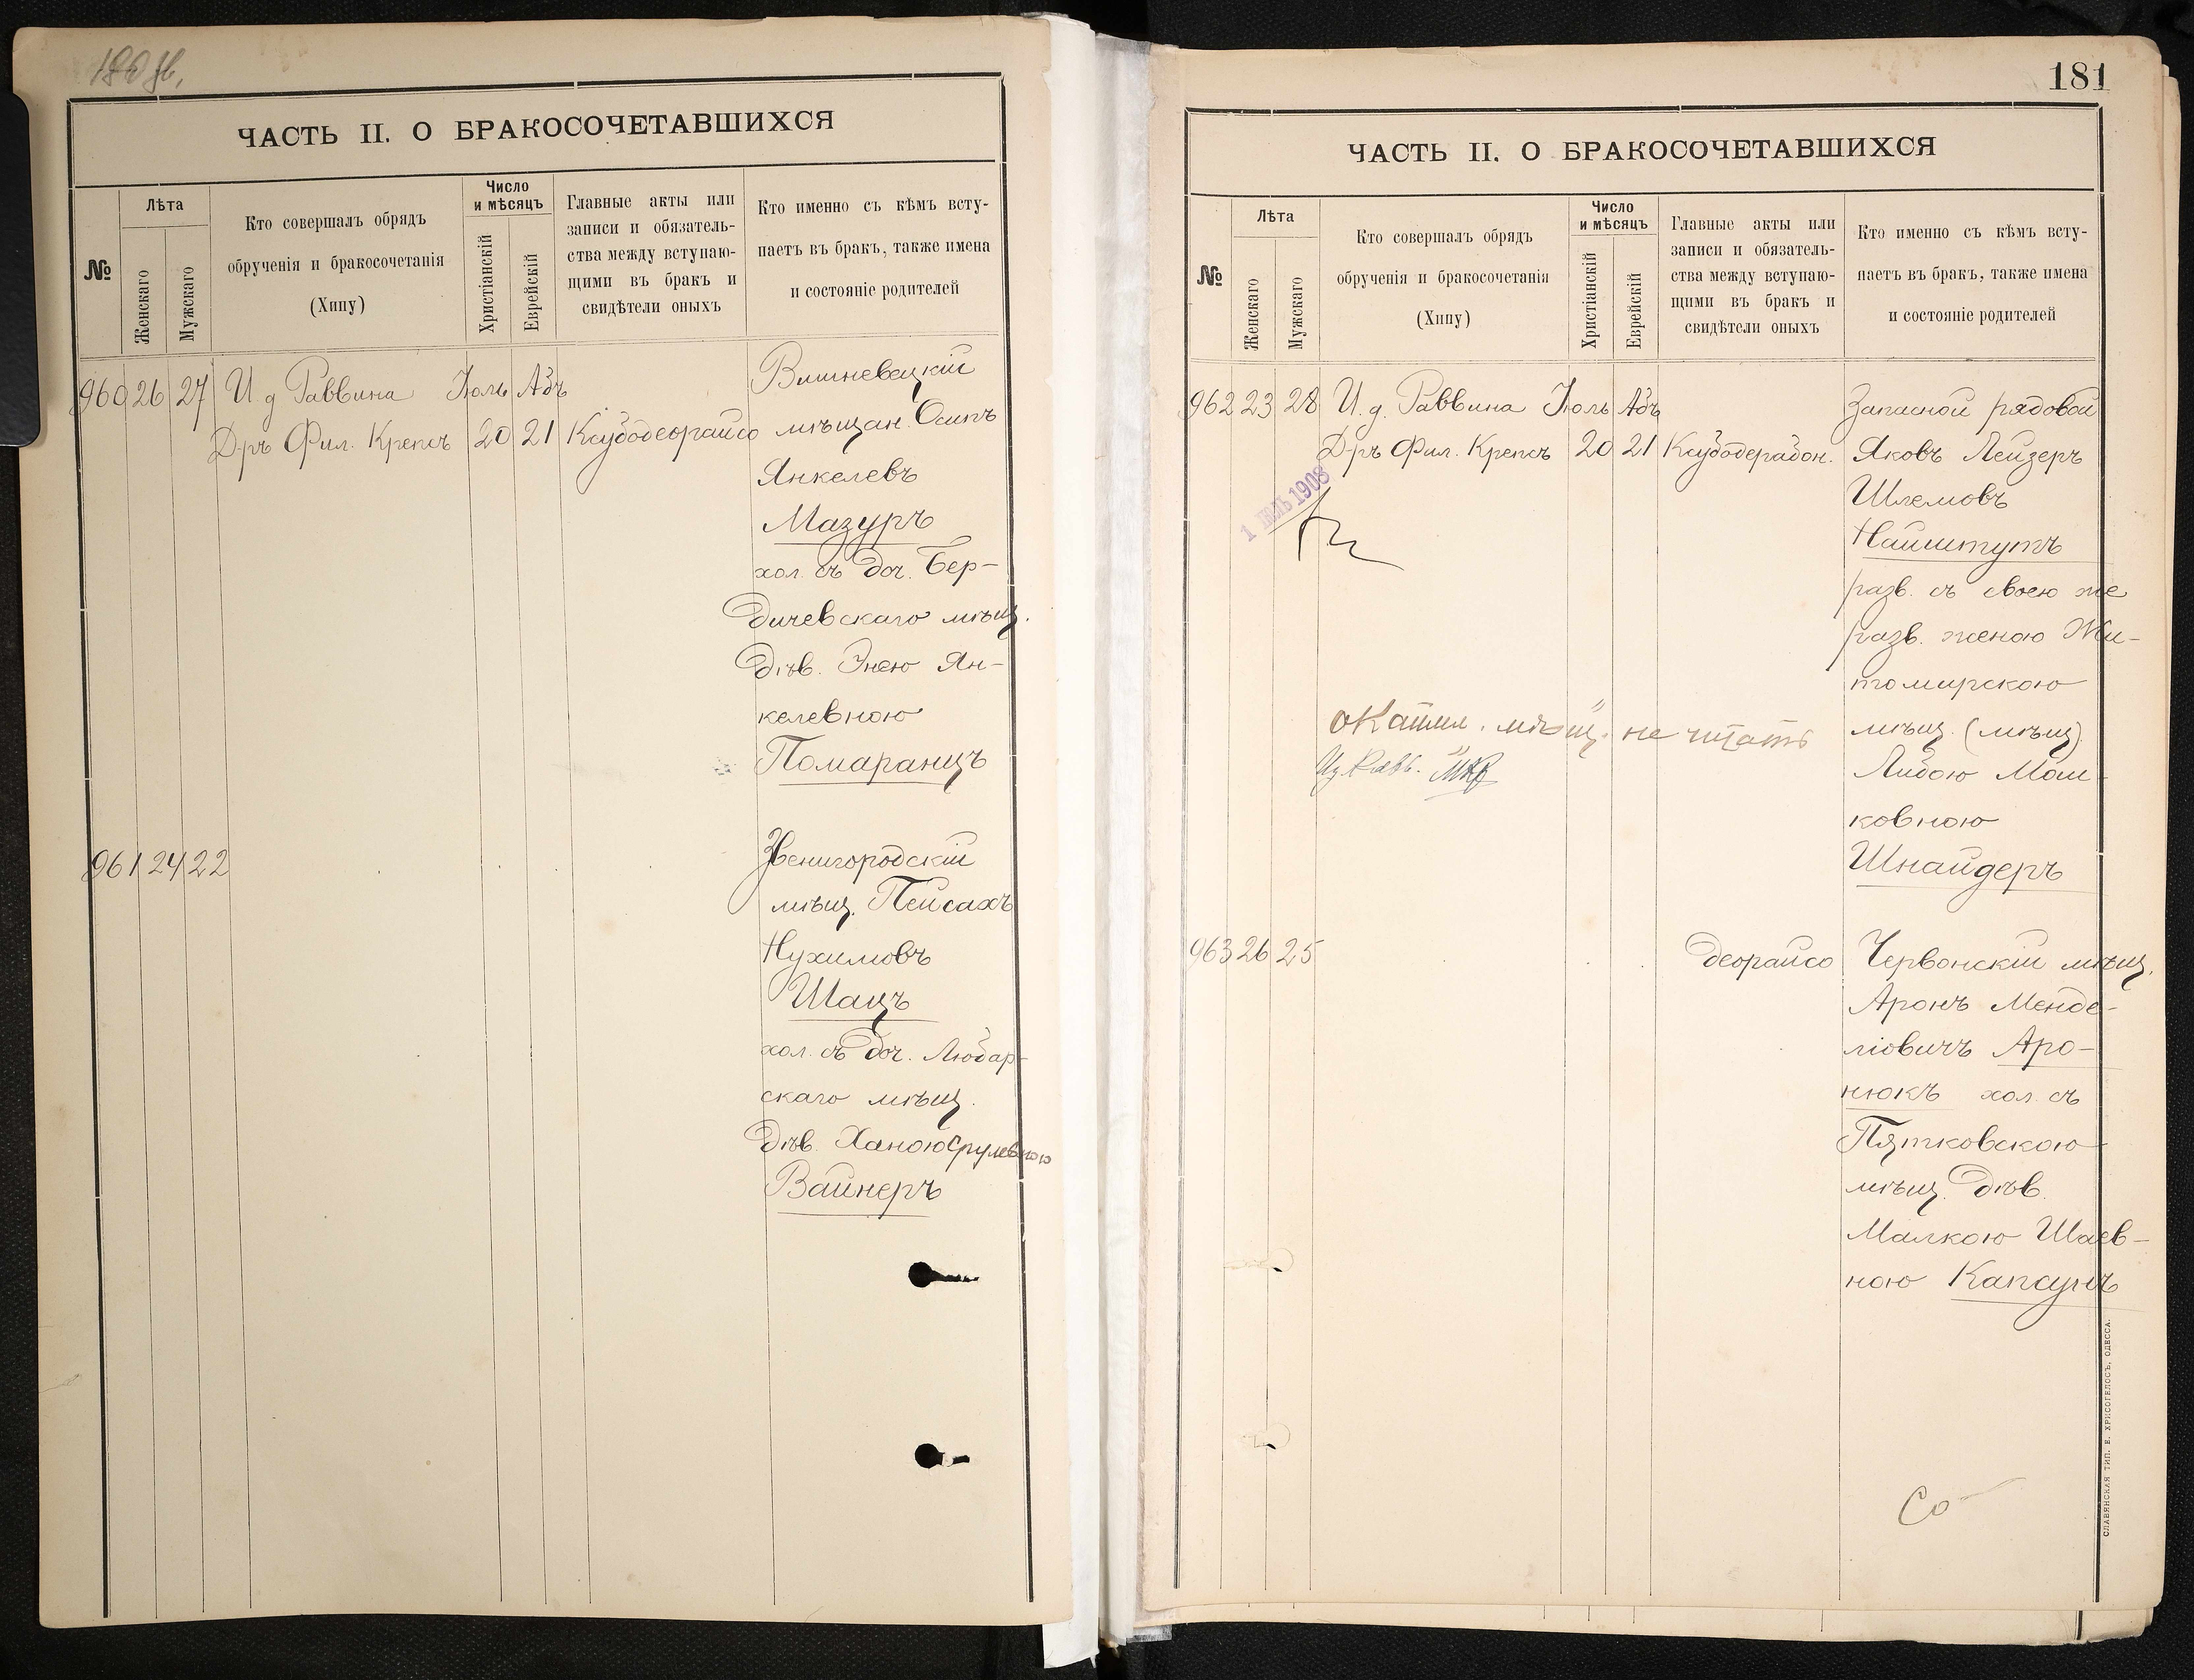 180 об.
ЧАСТЬ II. О БРАКОСОЧЕТАВШИХСЯ
№
Лѣта
Женскаго
Мужскаго
Кто совершалъ обрядъ
обрученія и бракосочетанія
(Хипу)
Число
и мѣсяцъ
Христіанскій
Еврейскій
Главные акты или
записи и обязатель-
ства между вступаю-
щими въ бракъ и
свидѣтели оныхъ
Кто именно съ кѣмъ всту-
паетъ въ бракъ, также имена
и состояніе родителей
960 26 27 И. д. Раввина Іюль Абъ
Д-ръ Фил. Крепсъ 20 21 Ксубодеорайсо
Вишневецкій
мѣщан. Осипъ
Янкелевъ
Мазуръ
хол. съ доч. Бер-
дичевскаго мѣщ.
дѣв. Энею Ян-
келевною
Померанцъ
961 24 22
Звенигородскій
мѣщ. Пейсахъ
Нухимовъ
Шацъ
хол. съ доч. Любар-
скаго мѣщ.
дѣв. Ханою Срулевною
Вайнеръ
181
ЧАСТЬ II. О БРАКОСОЧЕТАВШИХСЯ
№
Лѣта
Женскаго
Мужскаго
Кто совершалъ обрядъ
обрученія и бракосочетанія
(Хипу)
Число
и мѣсяцъ
Христіанскій
Еврейскій
Главные акты или
записи и обязатель-
ства между вступаю-
щими въ бракъ и
свидѣтели оныхъ
Кто именно съ кѣмъ всту-
паетъ въ бракъ, также имена
и состояніе родителей
962 23 28 И. д. Раввина Іюль Абъ
Д-ръ Фил. Крепсъ 20 21 Ксубодерабон.
1 1908
Запасной рядовой
Яковъ Лейзеръ
Шлемовъ
Найштутъ
разв. съ своею же
разв. женою Жи-
томирскою
мѣщ. (мѣщ)
Либою Мош-
ковною
Шнайдеръ
мѣщ. не читать
963 26 25
деорайсо
Червонскій мѣщ.
Аронъ Менде-
ліовичъ Аро-
нюкъ хол. съ
Пятковскою
мѣщ. дѣв.
Малкою Шаев-
ною Капсунъ
Со
СЛАВЯНСКАЯ ТИП. Е. ХРИСОГЕЛОСЪ, ОДЕССА.